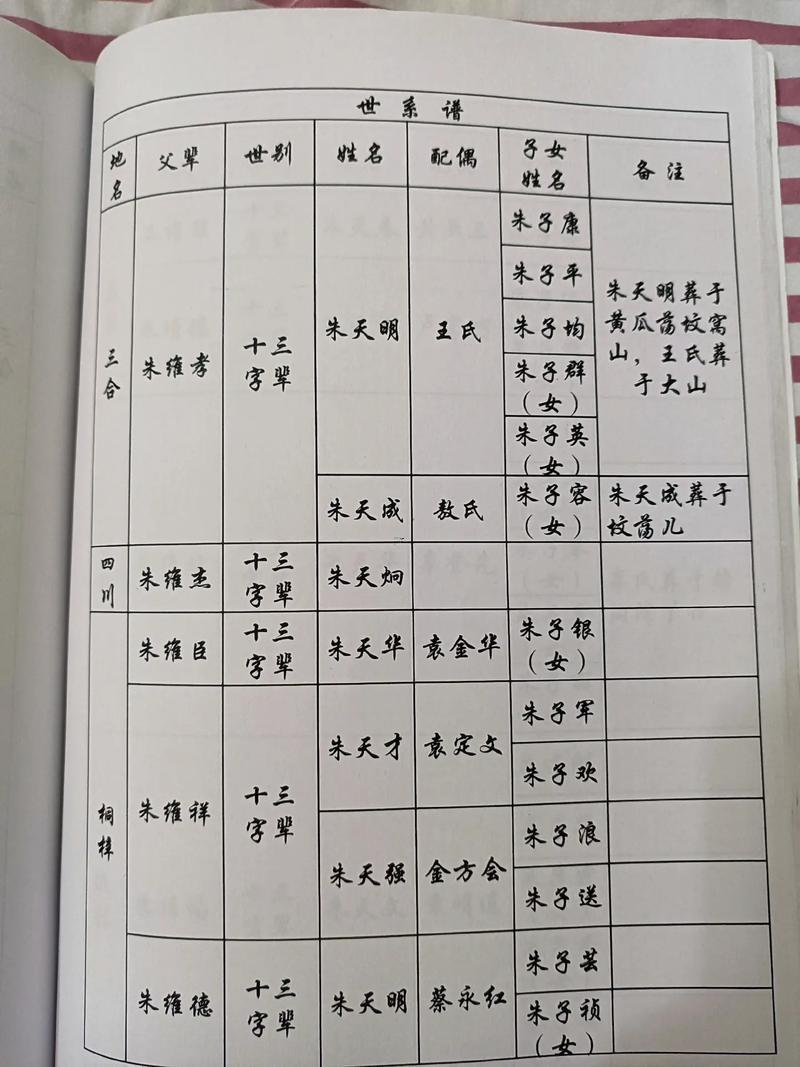 世系谱
地名 父辈 世别 姓名 配偶 子女姓名 备注
三合 朱维孝 十三字辈 朱天明 王氏 朱子康 朱天明葬于黄瓜荡坟窝山，王氏葬于大山
朱子平
朱子均
朱子群（女）
朱子英（女）
朱天成 敖氏 朱子容（女） 朱天成葬于坟荡儿
四川 朱维杰 十三字辈 朱天炯
桐梓 朱维臣 十三字辈 朱天华 袁金华 朱子银（女）
朱维祥 十三字辈 朱天才 袁定文 朱子军
朱子欢
朱天强 金方会 朱子浪
朱子送
朱维德 十三字辈 朱天明 蔡永红 朱子芸
朱子祯（女）